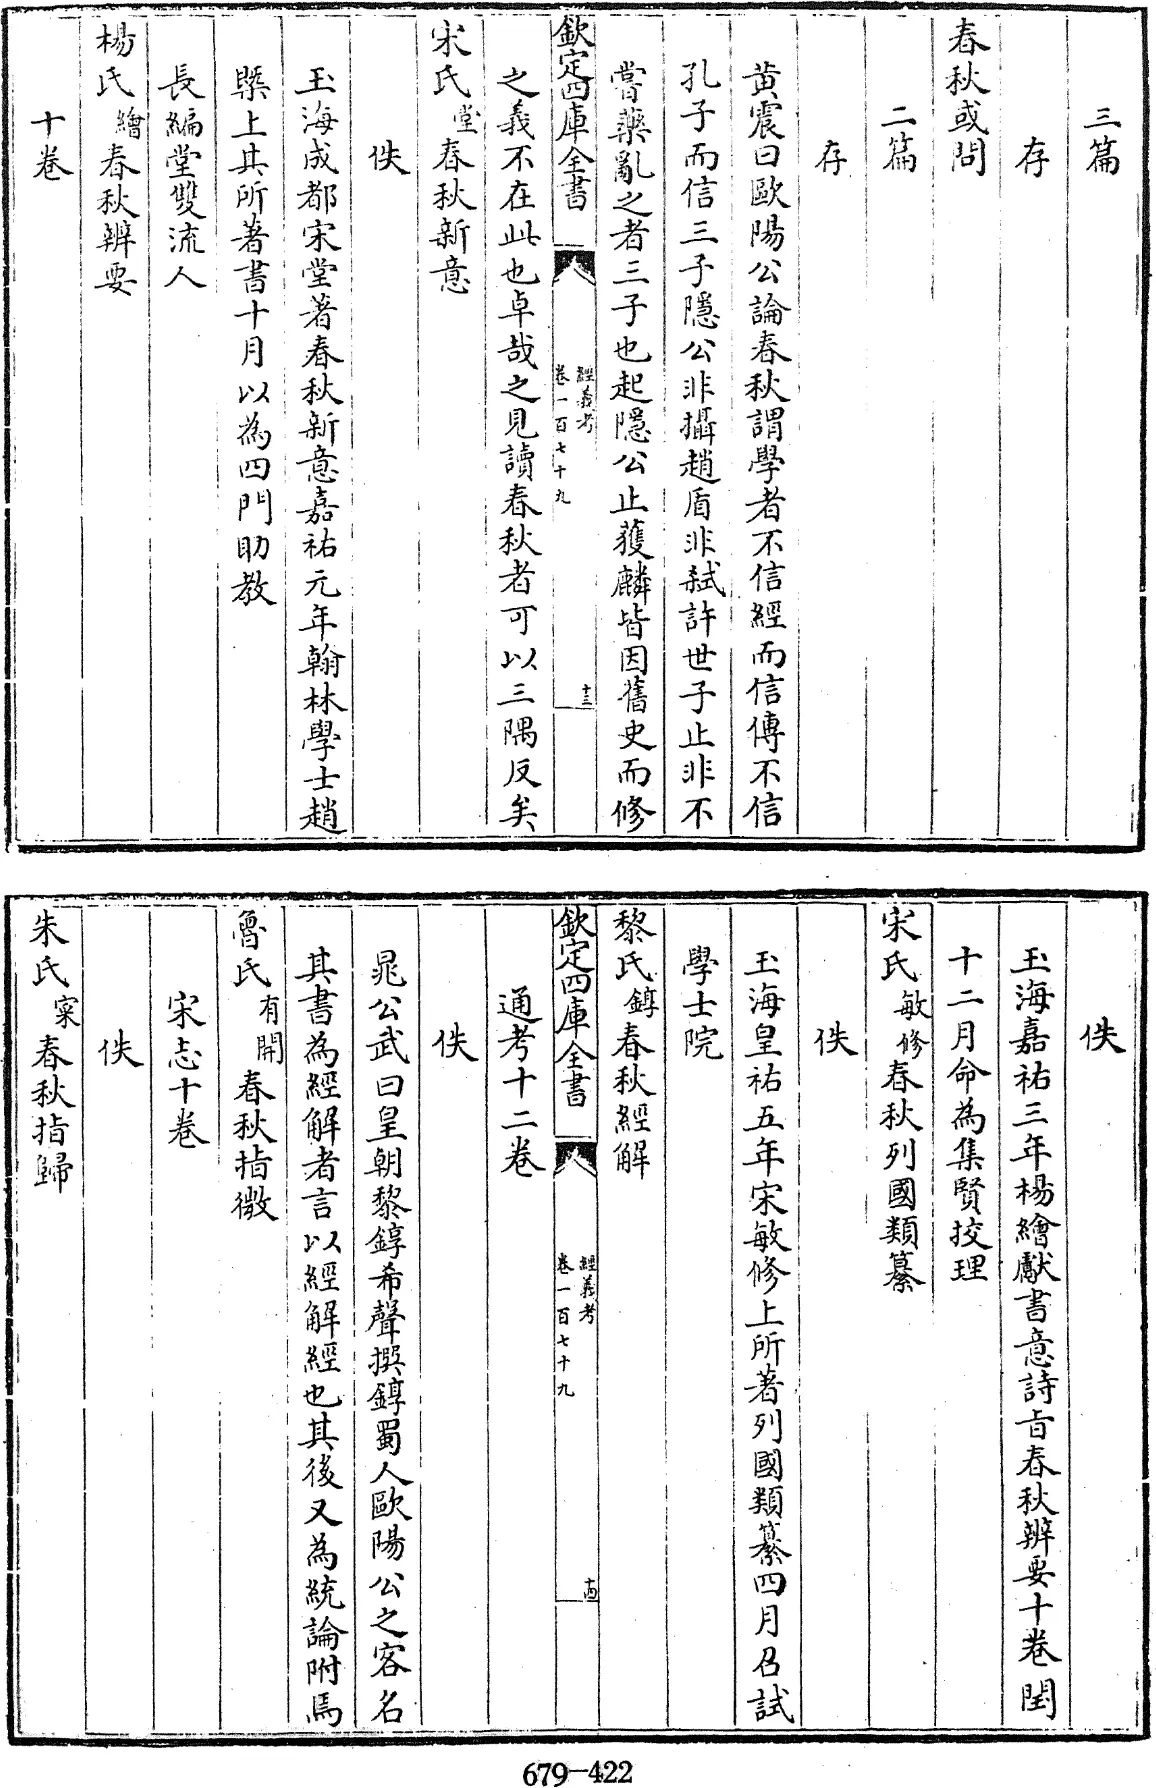 三篇
存
春秋或問
二篇
存
黄震曰歐陽公論春秋謂學者不信經而信傳不信
孔子而信三子隱公非攝趙盾非弑許世子止非不
嘗藥亂之者三子也起隱公止獲麟皆因舊史而修
欽定四庫全書
經義考
卷一百七十九
十三
之義不在此也卓哉之見讀春秋者可以三隅反矣
宋氏堂春秋新意
佚
玉海成都宋堂著春秋新意嘉祐元年翰林學士趙
槩上其所著書十月以為四門助教
長編堂雙流人
楊氏繪春秋辨要
十卷
佚
玉海嘉祐三年楊繪獻書意詩旨春秋辨要十卷閏
十二月命為集賢挍理
宋氏敏修春秋列國類纂
佚
玉海皇祐五年宋敏修上所著列國類纂四月召試
學士院
黎氏錞春秋經解
欽定四庫全書
經義考
卷一百七十九
十四
通考十二卷
佚
晁公武曰皇朝黎錞希聲撰錞蜀人歐陽公之客名
其書為經解者言以經解經也其後又為統論附焉
魯氏有開春秋指微
宋志十卷
佚
朱氏寀春秋指歸
679-422